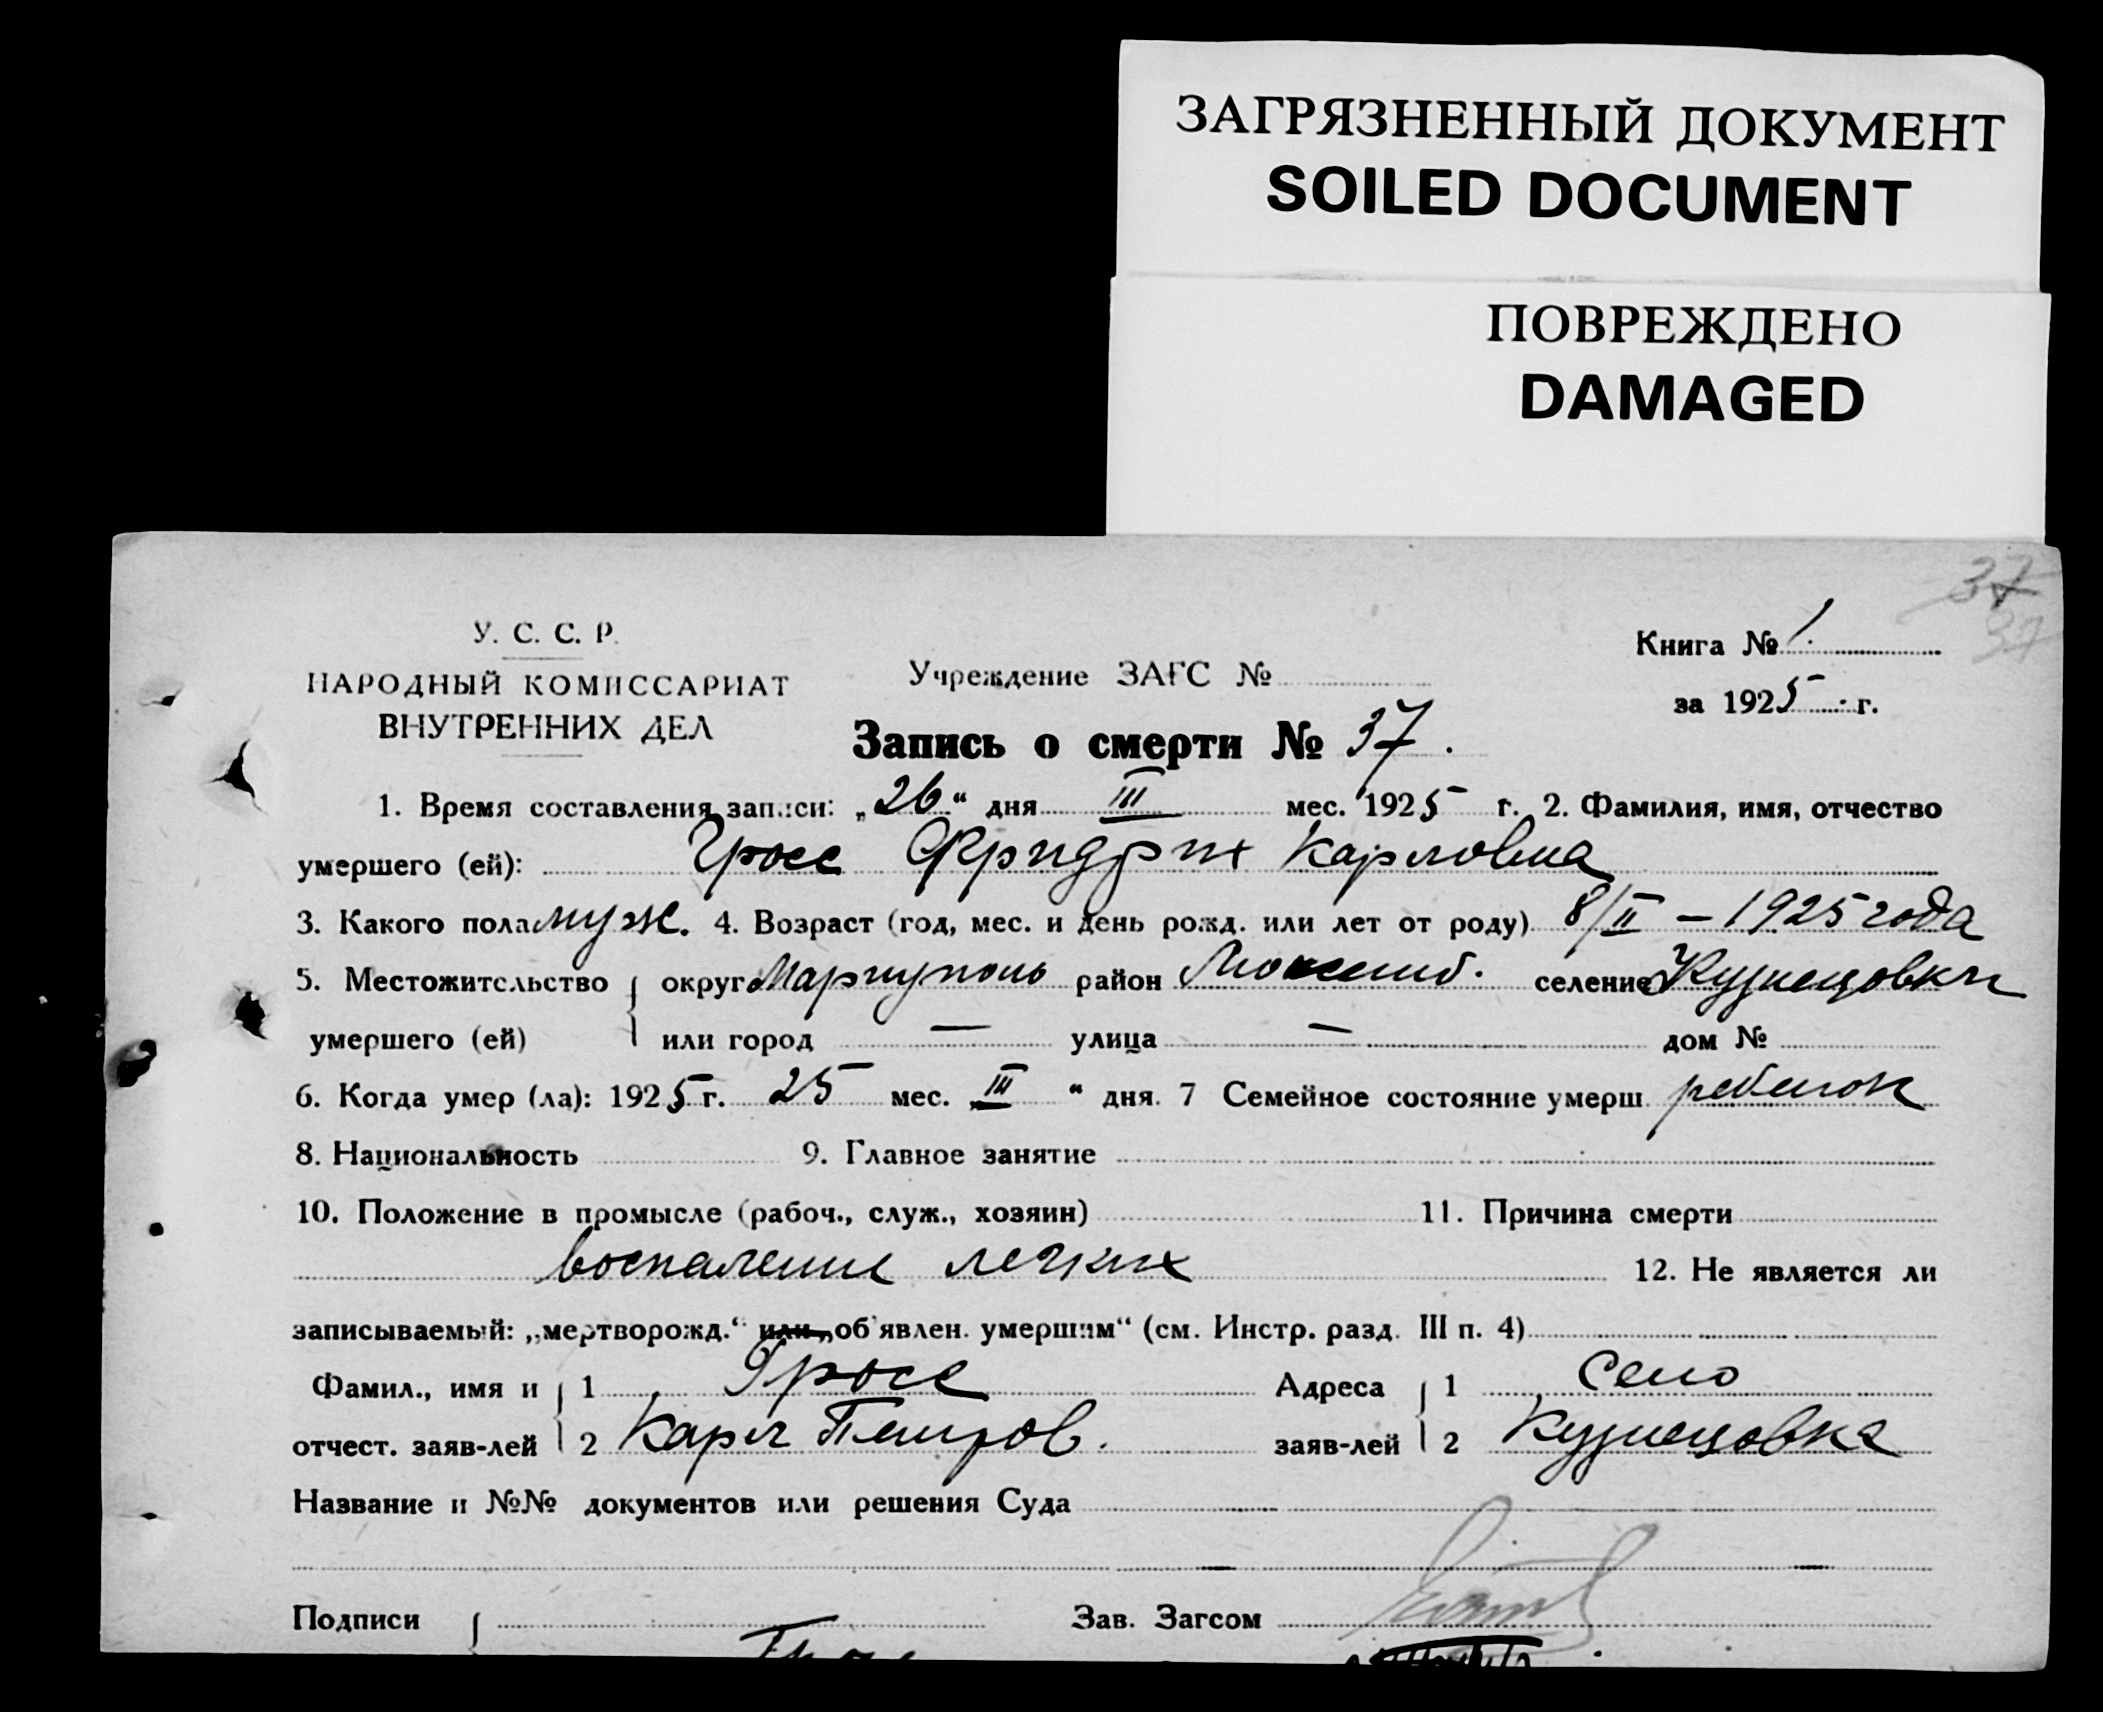 ЗАГРЯЗНЕННЫЙ ДОКУМЕНТ
SOILED DOCUMENT
ПОВРЕЖДЕНО
DAMAGED
37
37
У. С. С. Р.
НАРОДНЫЙ КОМИССАРИАТ
ВНУТРЕННИХ ДЕЛ
Учреждение ЗАГС №
Книга № 1.
за 1925 г.
Запись о смерти № 37.
1. Время составления записи: „26“ дня III мес. 1925 г. 2. Фамилия, имя, отчество
умершего (ей): Гросс Фридрих Карлович
3. Какого пола муж. 4. Возраст (год, мес. и день рожд. или лет от роду) 8/II – 1925 года
5. Местожительство округ Мариуполь район селение Кузнецовки
умершего (ей) или город — улица — дом №
6. Когда умер (ла): 1925 г. 25 мес. III “ дня. 7 Семейное состояние умерш. ребенок
8. Национальность 9. Главное занятие
10. Положение в промысле (рабоч., служ., хозяин) 11. Причина смерти
воспаление легких 12. Не является ли
записываемый: „мертворожд.“ или „об'явлен. умершим“ (см. Инстр. разд. III п. 4)
Фамил., имя и 1 Гросс Адреса 1 Село
отчест. заяв-лей 2 Карл Петров. заяв-лей 2 Кузнецовка
Название и №№ документов или решения Суда
Подписи Зав. Загсом